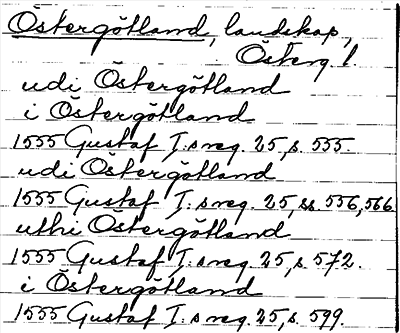 Östergötland, landskap,
Österg. l.
udi Östergötland
i Östergötland
1555 Gustaf I:s reg. 25, s. 535.
udi Östergötland
1555 Gustaf I:s reg. 25, ss. 556, 566
uthi Östergötland
1555 Gustaf I:s reg. 25, s. 572.
i Östergötland
1555 Gustaf I:s reg. 25, s. 599